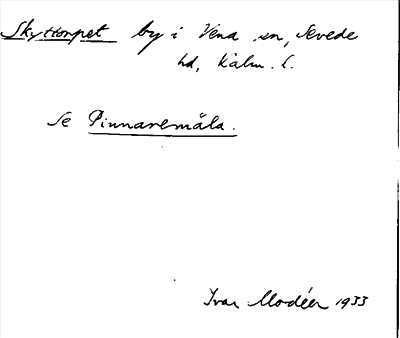 Skyttorpet by i Vena sn, Sevede
hd, Kalm. l.
Se Pinnaremåla.
Ivar Modéer 1933